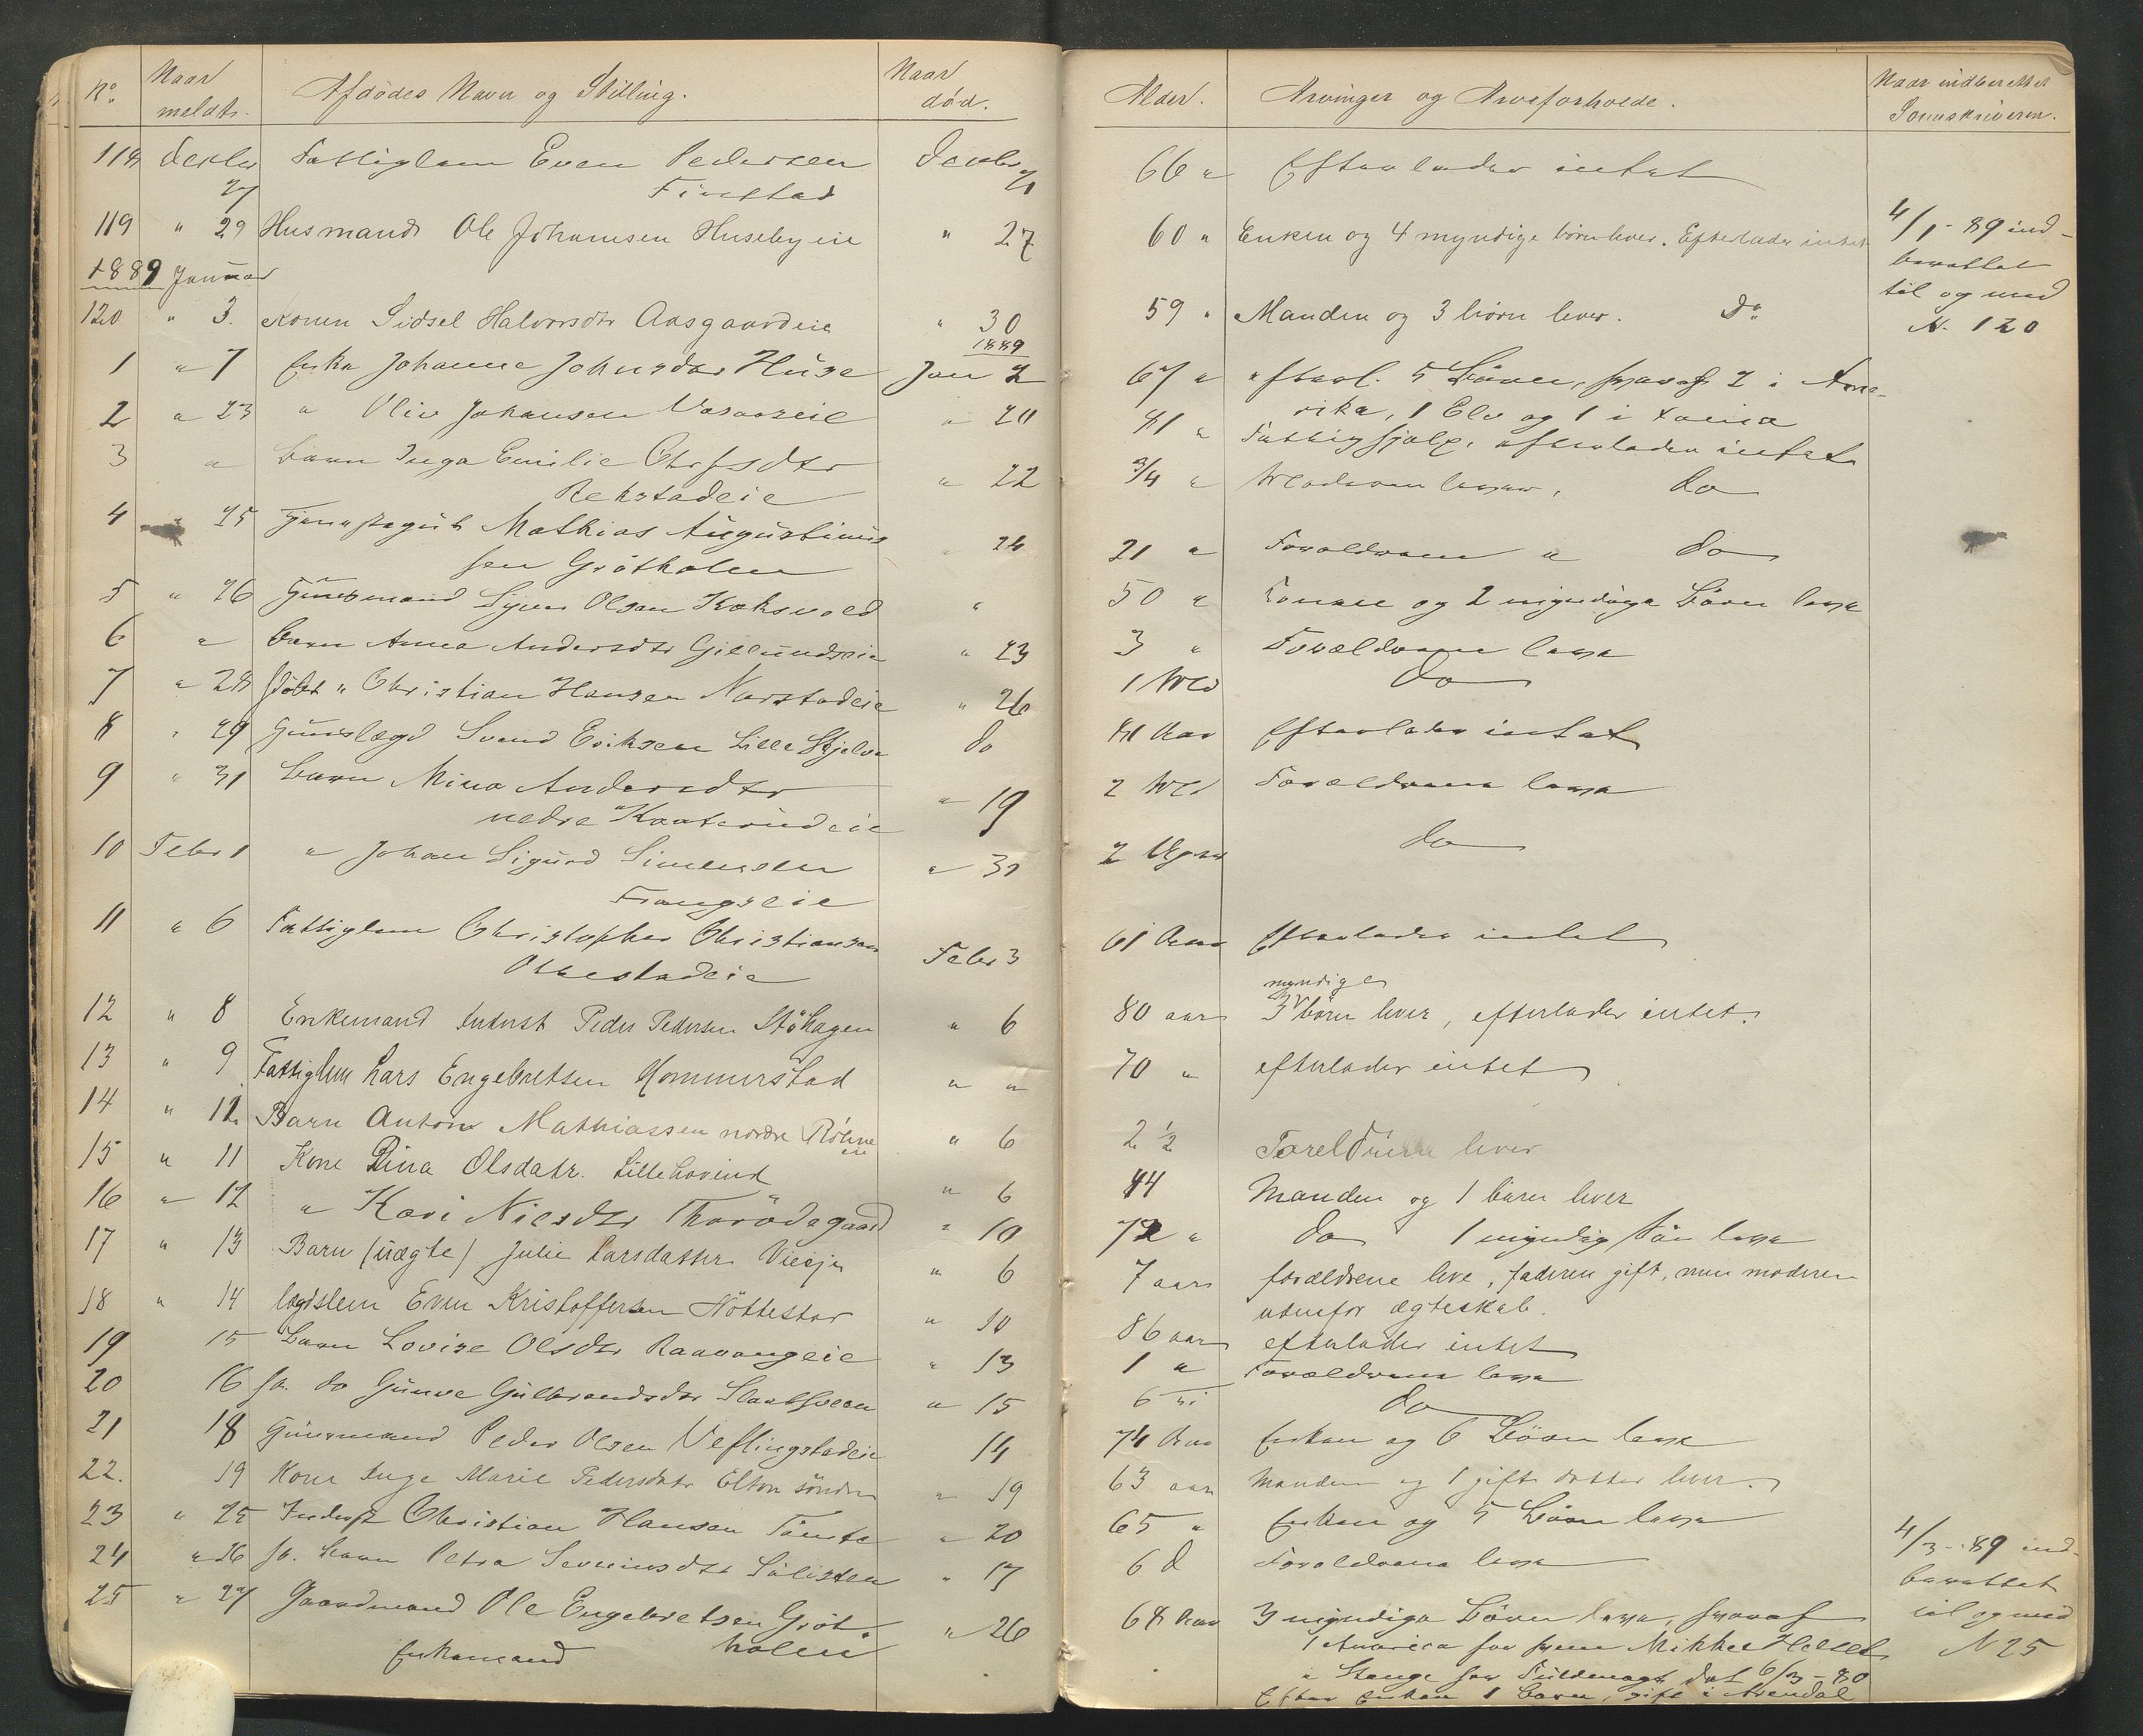 No. Naar meldt. Afdødes Navn og Stilling. Naar død. Alder. Arvinger og Arveforholde. Naar indberettet Sorenskriveren.
118 Decbr 27 Fattiglem Even Pedersen Finstad Decbr 21 66 " Efterlader intet
119 " 29 Husmand Ole Johansen Husebyeie " 27 60 " Enken og 4 myndige børn lever. Efterlader intet
4/1-89 indberettet til og med N. 120
1889 Januar
120 " 3. Konen Sidsel Halvorsdtr Aasgaardeie " 30 59 " Manden og 3 børn lever. Do
1889
1 " 7 Enke Johanne Johnsdtr Huse Jan 2 67 " efterl. 5 Børn, hvoraf 2 i Amerika, 1 Elv og 1 i
2 " 23 " Olive Johansen " 20 81 " Fattighjælp, efterlader intet
3 " Barn Inga Emilie Chrfsdtr Rekstadeie " 22 3/4 " Moderen lever, do
4 " 25 Mathias Augustinussen Grötholen " 24 21 " Forældrene " do
5 " 26 Huusmand Syver Olsen Koksvold " 50 " Konen og 2 myndige Börn leve
6 " Barn Anna Andersdtr Gillundseie " 23 3 " Forældrene leve
7 " 28 " Christian Hansen Narstadeie " 26 1 Md do
8 " 29 Svend Eriksen Lille Skjelve do 81 Aar Efterlader intet
9 " 31 Barn Mina Andersdtr nedre Kaaterudeie " 19 2 Md Forældrene leve
10 Febr 1 " Johan Sigurd Simensen Frangseie " 31 2 do
11 " 6 Fattiglem Christopher Christiansen Febr 3 61 Aar Efterlader intet
12 " 8 Enkemand Inderst Peder Pedersen Stöhagen " 6 80 aar 3 myndige børn lever, efterlader intet.
13 " 9 Fattiglem Lars Engebretsen Kommerstad " " 70 " efterlader intet
14 " 12 Barn Anton Mathiassen nordre Röhneeie " 6 2 1/2 Foreldrene lever
15 " 11 Kone Dina Olsdatr. Lille Hovind " 6 44 Manden og 1 barn lever
16 " 12 " Kari Nilsdtr Thorödegaard " 10 72 " do 1 myndig Sön leve
17 " 13 Barn (uægte) Julie Larsdatter " 6 7 aar forældrene leve, faderen gift, men moderen udenfor ægteskab.
18 " 14 lægdslem Even Kristoffersen Nöttestad " 10 86 aar efterlader intet
19 15 Barn Lovise Olsdtr Raavangeie " 13 1 " Forældrene leve
20 16 sp. do Gunve Gulbrandsdtr " 15 6 do
21 18 Huusmand Peder Olsen Veflingstadeie 14 74 Aar Enken og 6 Börn leve
22. 19 Kone Inge Marie Pedersdatr Elton söndre " 19 63 aar Manden og 1 gift datter lever.
23 " 25 Inderst Christian Hansen Tömte " 20 65 " Enken og 5 Börn leve
24 " 26 sp. barn Petra Severinsdtr " 17 6 d Forældrene leve
4/3-89 indberettet til og med N 25
25 " 27 Gaardmand Ole Engebretsen Grötholen " 26 68 Aar 3 myndige Börn leve, hvoraf
Enkemand
1 America for hvem Mikkel
" Stange har Fuldmagt dat 6/3-80
Efter Enken 1 barn, gift i Arendal